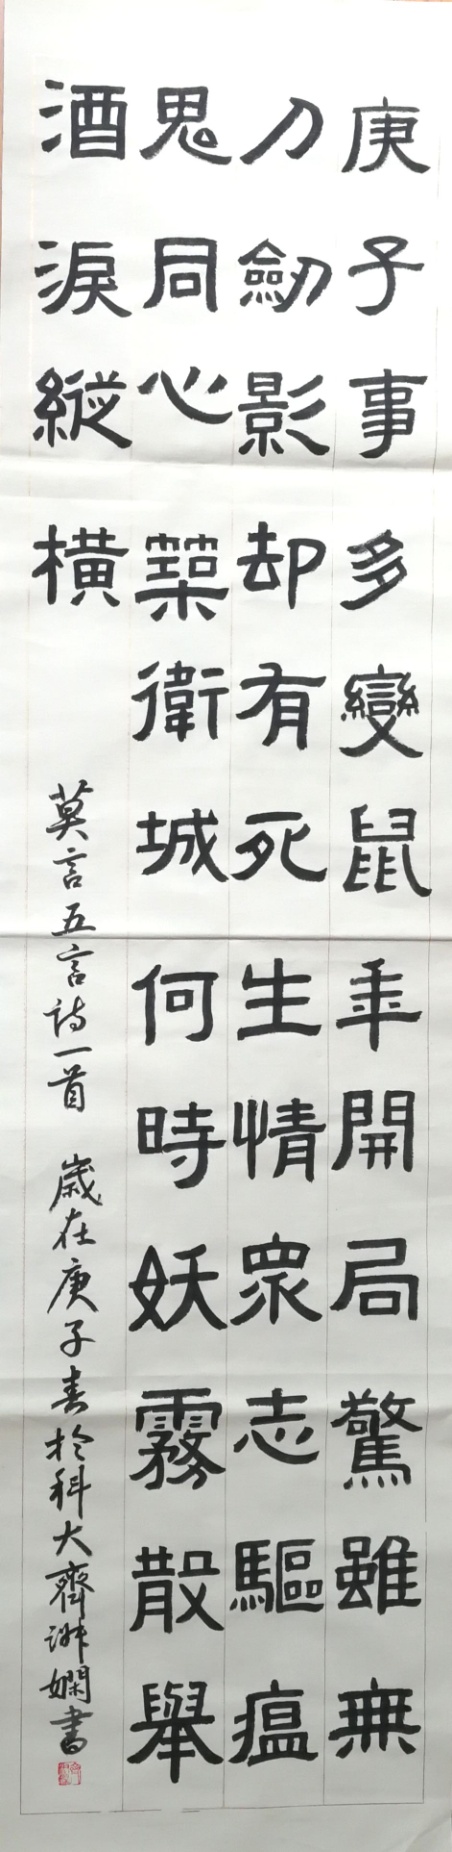 庚子事多變鼠年開局驚雖無
刀劍影却有死生情眾志驅瘟
鬼同心築衛城何時妖霧散舉
酒淚縱橫
莫言五言诗一首 歲在庚子春於科大齊淑嫻書